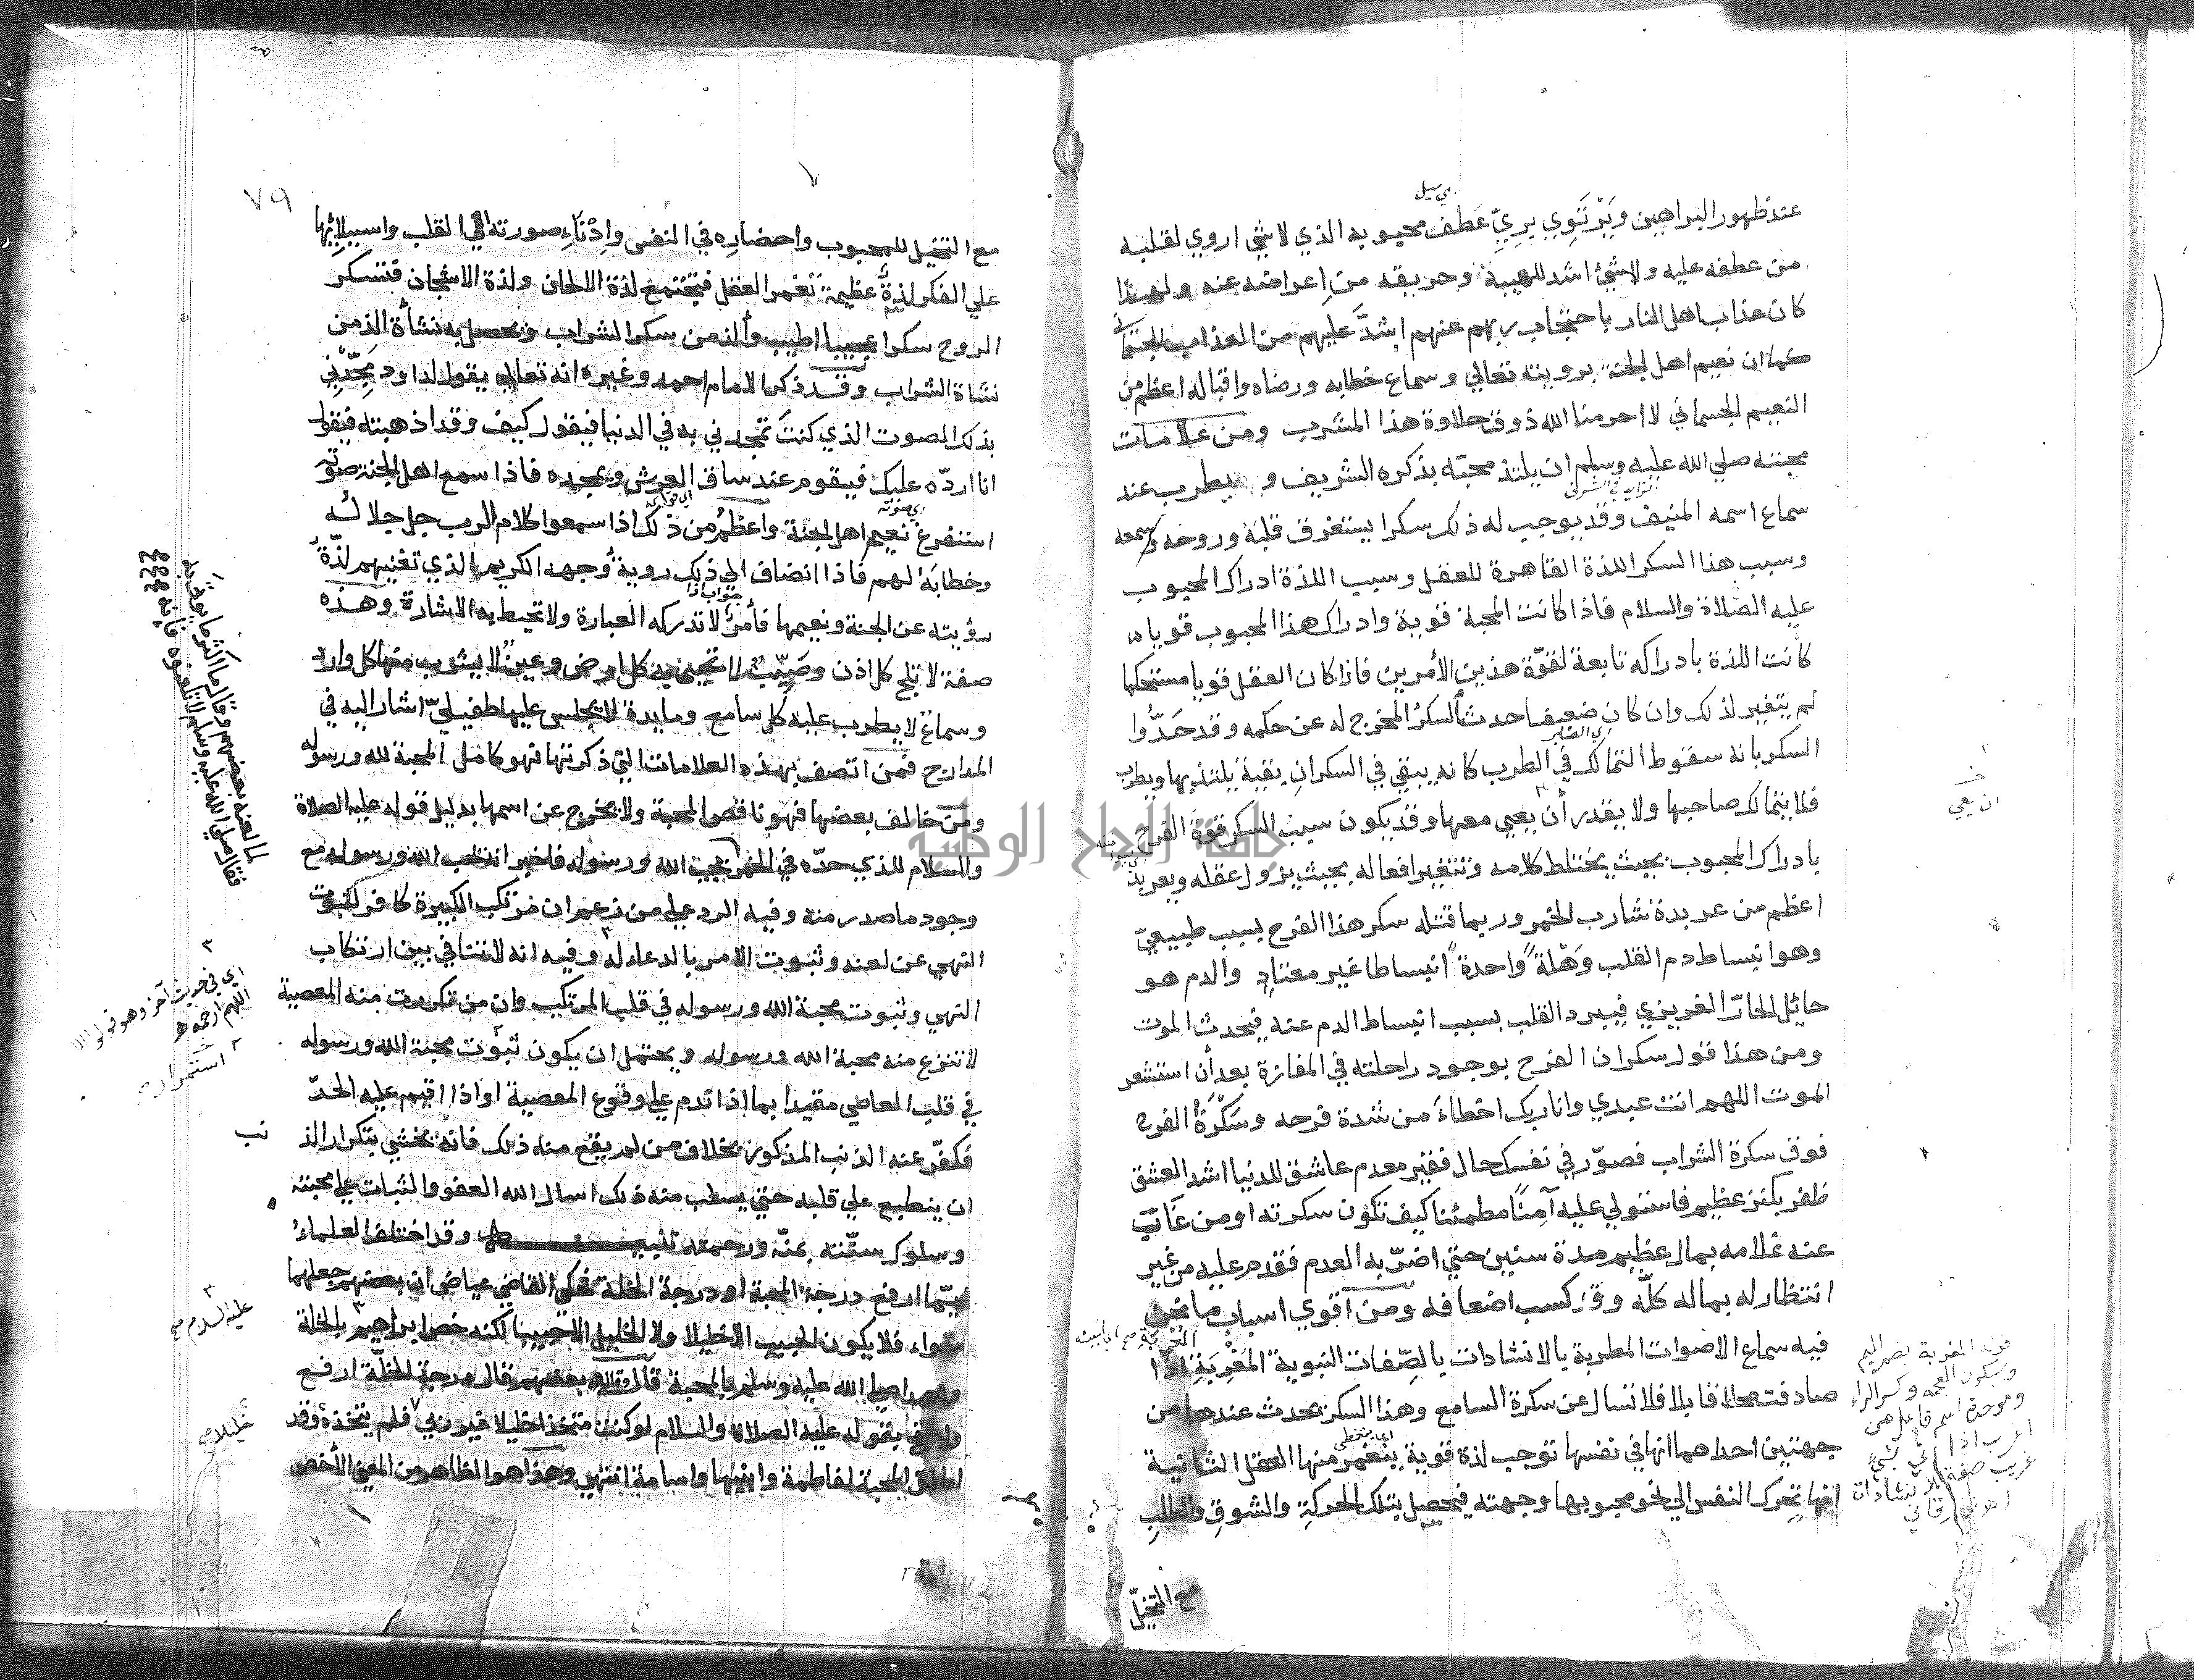 عند ظهور البراهين ويرتوي بريّ عَطف محبوبه الذي لا شئ اروي لقلبه
من عطفه عليه ولا شئ اشد للهيبه وحريقه من إعراضه عنه ولهذا
كان عذاب اهل النار باحتجاب ربهم عنهم اشدَّ عليهم من العذاب الجثماني
كما ان نعيم اهل الجنة برويته تعالي وسماع خطابه ورضاه واقباله اعظم من
النعيم الجسماني لا احرمنا الله ذوق حلاوة هذا المشرب ومن علامات
محبته صلي الله عليه وسلم ان يلتذ محبّه بذكره الشريف ويطرب عند
سماع اسمه المنيف وقد يوجب له ذلك سكرا يستغرق قلبه وروحه وسمعه
وسبب هذا السكر اللذة القاهرة للعقل وسبب اللذة ادراك المحبوب
عليه الصلاة والسلام فاذا كانت المحبة قوية وادراك هذا المحبوب قويا
كانت اللذة بادراكه تابعة لقوّة هذين الأمرين فاذا كان العقل قويا مستحكما
لم يتغير لذلك وان كان ضعيفا حدث السكرُ المخرج له عن حكمه وقد حَدُّوا
السكر بانه سقوط التمالك في الطرب كانه يبقي في السكران بقية يلتذ بها ويطرب
فلا يتمالك صاحبها ولا يقدر أن يعي معها وقد يكون سبب السكر قوة الفرح
بادراك المحبوب بحيث يختلط كلامه وتتغير افعاله بحيث يزول عقله ويعربد
اعظم من عربدة شارب الخمر وربما قتله سكر هذا الفرح بسبب طبيعيّ
وهو انبساط دم القلب وَهْلة واحدة انبساطا غير معتاد والدم هو
حائل الحارّ الغريزي فيبرد القلب بسبب انبساط الدم عنه فيحدث الموت
ومن هذا قول سكران الفرح بوجود راحلته في المفازة بعد أن استشعر
الموت اللهم انت عبدي وانا ربك اخطاءَ من شدة فرحه وسَكْرَةُ الفرح
فوق سكرة الشراب فصوّر في نفسك حال فقير معدم عاشق للدنيا اشد العشق
ظفر بكنز عظيم فاستولي عليه آمِنًا مطمئنا كيف تكون سكرته او من غابَ
عنه غلامه بمال عظيم مدة سنين حتي اضرّ به العدم فقدم عليه من غير
انتظار له بماله كلّه وقد كسب اضعافه ومن اقوي اسباب ما نحن
فيه سماع الاصوات المطربة بالانشادات بالصِّفات النبوية المُغْرِبَةِ اذا
صادفت محلا قابلا فلا تسال عن سكرة السامع وهذا السكر يحدث عندها من
جهتين احداهما انها في نفسها توجب لذة قوية ينغمر منها العقل الثانية
انها تحرك النفس الي نحو محبوبها وجهته فيحصل بتلك الحركةِ والشوقِ والطلبِ
مع التخيّل
ان يعي
قوله المغربة بضم الميم
وسكون المعجمة وكسر الراء
وموحدة اسم فاعل من
اغرب اذا اتي بشئ
غريب صفة للانشادات
٧٩
مع التخيل للمحبوب واحضارِه في النفس وإدْناءِ صورته الي القلب واستيلائِها
علي الفكر لذةٌ عظيمة تغمر العقل فتجتمع لذة الالحان ولذة الاشجان فتسكر
الروح سكرا عجيبا اطيب وألذ من سكر الشراب وتحصل به نشأة الذ من
نشاة الشراب وقد ذكر الامام احمد وغيره انه تعالي يقول لداود مَجِّدْنِي
بذلك الصوت الذي كنت تمجدني به في الدنيا فيقول كيف وقد اذهبته فيقول
انا اردّه عليك فيقوم عند ساق العرش ويمجده فاذا سمع اهل الجنة صوته
استفرغ نعيم اهل الجنة واعظمُ من ذلك اذا سمعوا كلام الرب جل جلاله
وخطابَه لهم فاذا انضاف الي ذلك رويةُ وجهه الكريم الذي تغنيهم لذّةُ
رؤيته عن الجنة ونعيمها فأمرٌ لا تدركه العبارة ولا تحيط به الاشارة وهذه
صفة لا تلج كل اذن وصَيِّبٌ لا تحيي به كل ارض وعينٌ لا يشرب منها كل وارد
وسماعٌ لا يطرب عليه كل سامع ومايدة لا يجلس عليها طفيليّ اشار اليه في
المدارج فمن اتصف بهذه العلامات التي ذكرتها فهو كامل المحبة لله ورسوله
ومن خالف بعضها فهو ناقص المحبة ولا يخرج عن اسمها بدليل قوله عليه الصلاة
والسلام للذي حدّه في الخمر يحب الله ورسوله فاخبر انه يحب الله ورسوله مع
وجود ما صدر منه وفيه الرد علي من زعم ان مرتكب الكبيرة كافر لثبوت
النهي عن لعنه وثبوت الامر بالدعاء له وفيه انه لا تنافي بين ارتكاب
النهي وثبوت محبة الله ورسوله في قلب المرتكب وان من تكررت منه المعصية
لا تنزع منه محبة الله ورسوله ويحتمل ان يكون ثبوت محبة الله ورسوله
في قلب العاصي مقيدا بما اذا ندم علي وقوع المعصية او اذا اقيم عليه الحدّ
فكفّر عنه الذنب المذكور بخلاف من لم يقع منه ذلك فانه يخشي بتكرار الذنب
ان ينطبع علي قلبه حتي يسلب منه ذلك اسال الله العفو والثبات علي محبته
وسلوك سنّته بمنّه ورحمته تنبيه وقد اختلف العلماءُ
ايّما ارفع درجة المحبة او درجة الخلة فحكي القاضي عياض ان بعضهم جعلهما
سواء فلا يكون الحبيب الا خليلا ولا الخليل الا حبيبا لكنه خص ابراهيم بالخلة
ومحمدا صلي الله عليه وسلم بالمحبة قال وقال بعضهم قال درجة الخلّة ارفع
واحتج بقوله عليه الصلاة والسلام لو كنت متخذا خليلا غير ربي فلم يتخذه وقد
اطلق المحبة لفاطمة وابنيها واسامة انتهي وهذا هو الظاهر من المعني الأخص
لما لعنه بعضهم وقال ما اكثر ما يوتي به
فقال صلي الله عليه وسلم لا تلعنوه فانه
اي في حديث آخر وهو قولوا
اللهم ارحمه
استمرار
عليه السلام صح
خليلا صح
جامعة النجاح الوطنية